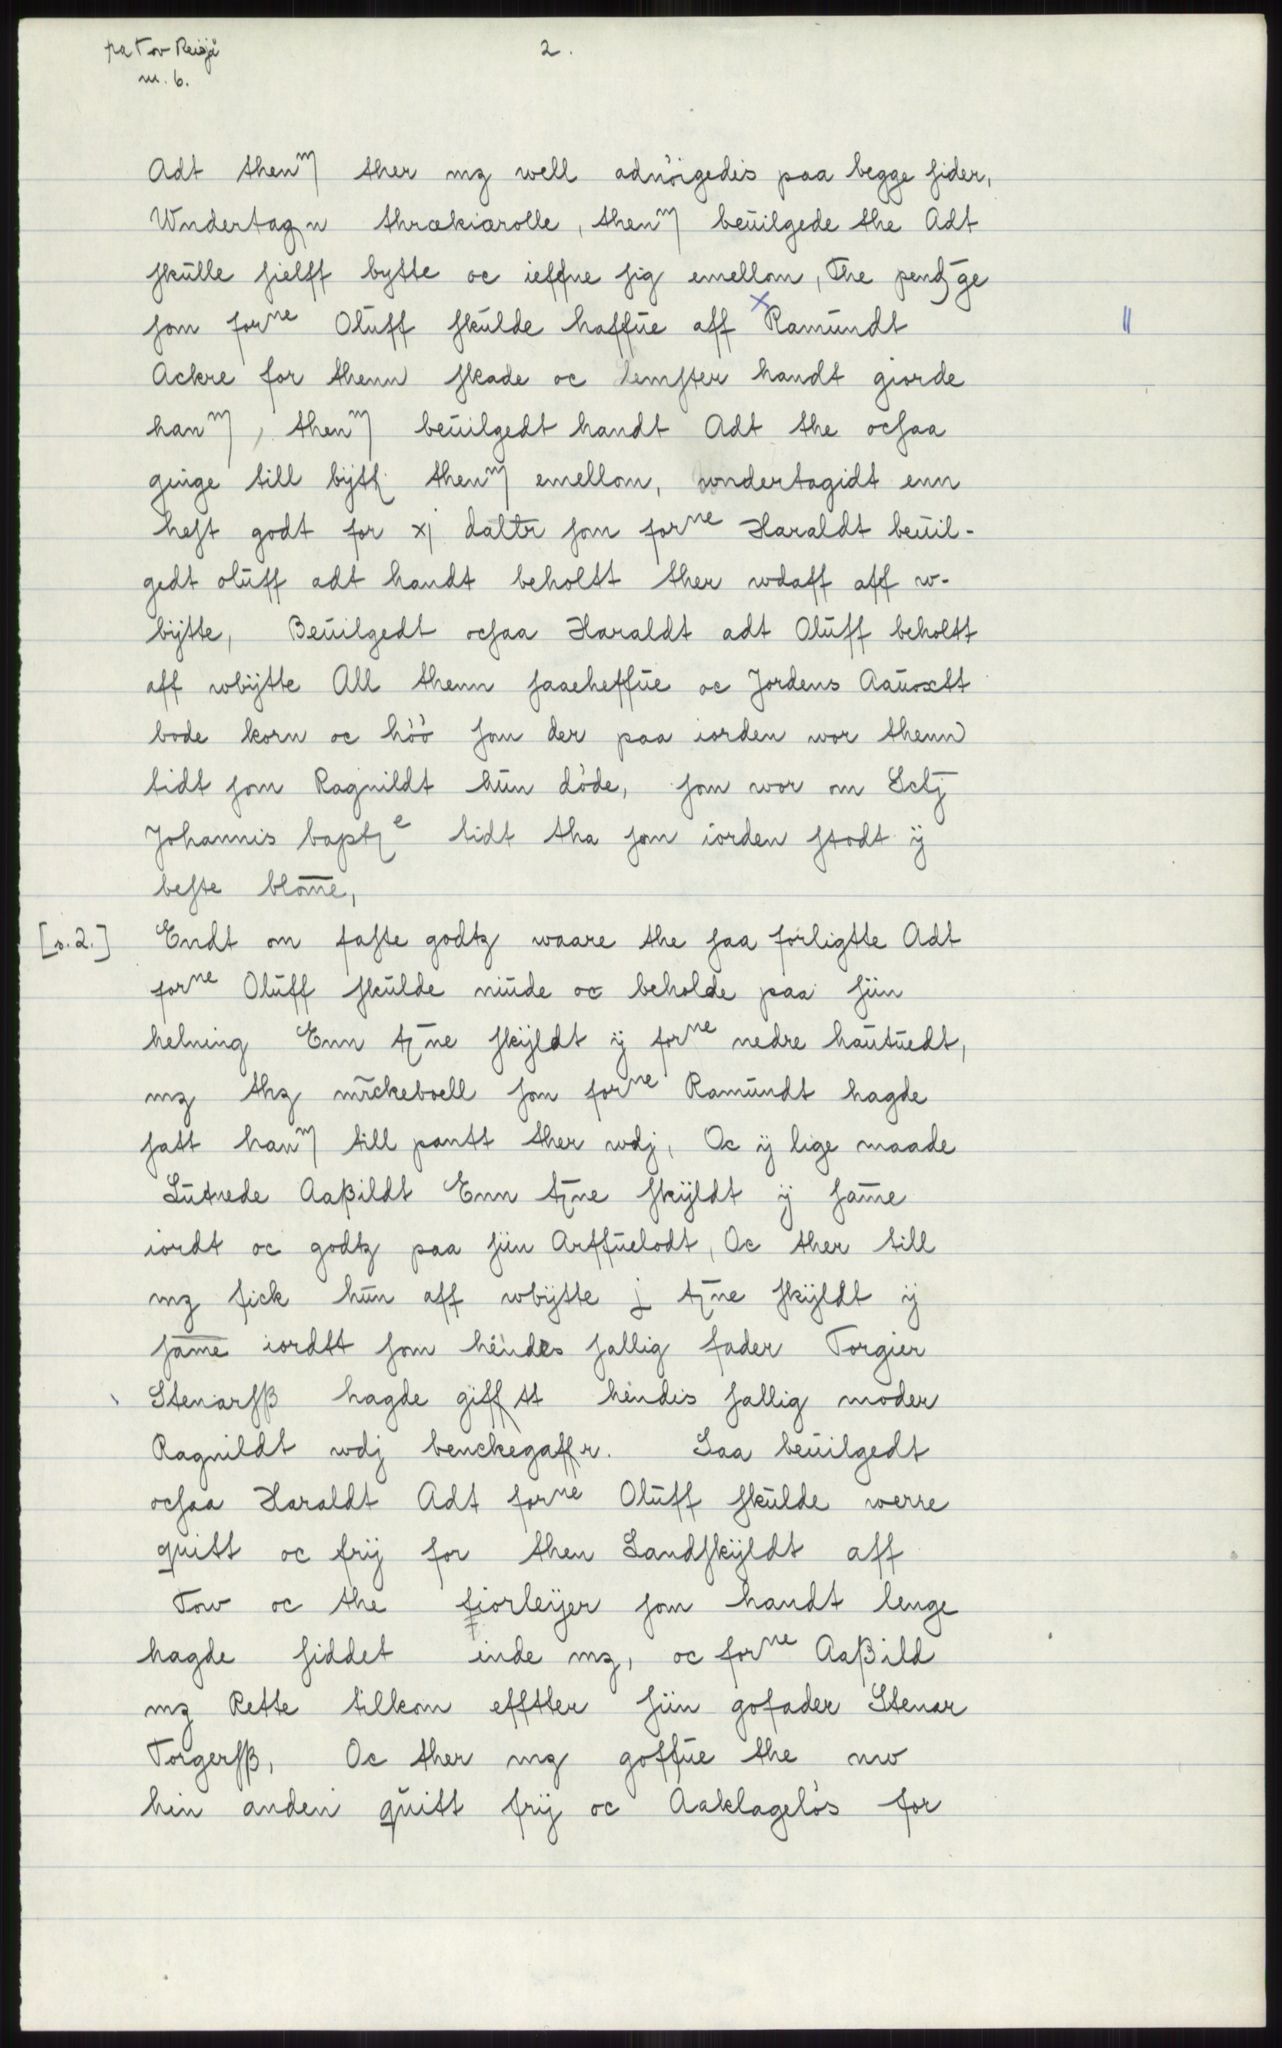 pa Tov Reisjå
m. 6.
2.
Adt thenm ther mz well adnöigedis paa begge sider,
Wndertagn thrækiærolle, thenm beuilgede the Adt
skulle sielff bytte oc ieffne sig emellom, The pendge
som forne Oluff skulde haffue aff x Ramundt
Ackre for thenn skade oc lemster handt giorde
hanm, thenm beuilgedt handt Adt the ocsaa
ginge till bÿtt thenm emellom, wndertagidt enn
hest godt for xj daltr som forne Haraldt beuil-
gedt oluff adt handt beholtt ther wdaff aff w-
bÿtte, Beuilgedt ocsaa Haraldt adt Oluff beholtt
aff wbÿtte All thenn saaheffue oc Jordens Aauoxtt
bode korn oc höö som der paa iorden wor thenn
tidt som Ragnildt hun döde, som wor om Sctj
Johannis bapte tidt tha som iorden stodt ÿ
beste blome,
[s. 2.] Endt om faste godtz waare the saa forligtte Adt
forne Oluff skulde niude oc beholde paa siin
helning Enn tne skÿldt ÿ forne nedre hautuedt,
mz thz mickeboell som forne Ramundt hagde
satt hanm till pantt ther wdj, Oc ÿ lige maade
Lutnede Aaßildt Enn tne skÿldt ÿ same
iordt oc godtz paa siin Arffuelodt, Oc ther till
mz fick hun aff wbÿtte j tne skÿldt ÿ
same iordtt som hendes sallig fader Torgier
Stenarsß hagde gifftt hendis sallig moder
Ragnildt wdj benckegaffr. Saa beuilgedt
ocsaa Haraldt Adt forne Oluff skulde werre
quitt oc frÿ for then Landskÿldt aff
Tow oc the fiorleÿer som handt lenge
hagde siddet inde mz, oc forne Aaßild
mz Rette tilkom effter siin gofader Stenar
Torgersß, Oc ther mz goffue the nw
hin anden quitt frÿ oc Aaklagelös for